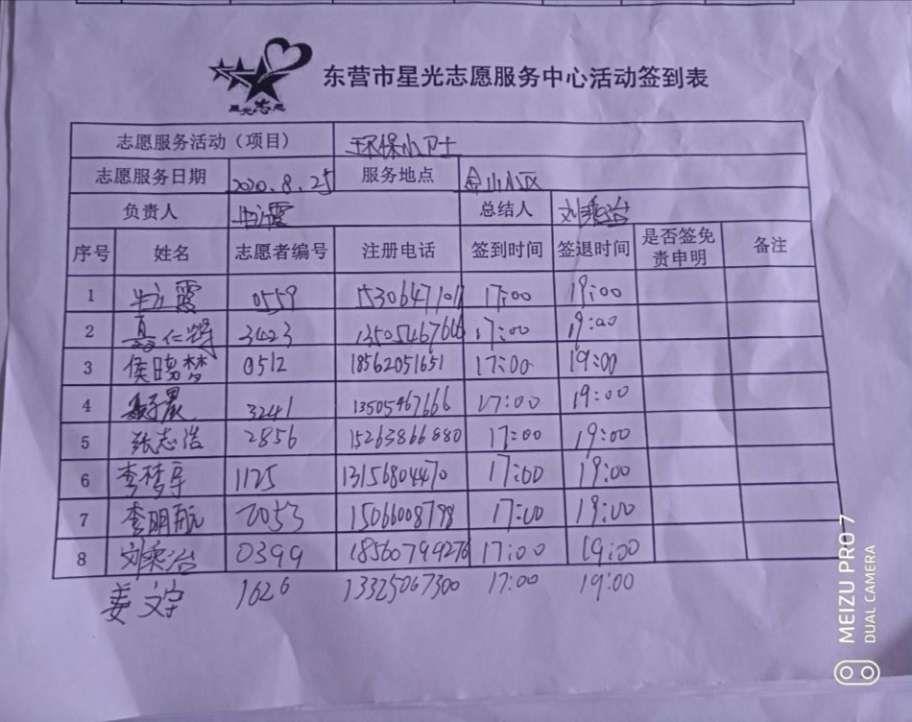 星光志愿
东营市星光志愿服务中心活动签到表
志愿服务活动（项目） 环保小卫士
志愿服务日期 2020.8.25 服务地点 金山小区
负责人 牛立霞 总结人 刘乘治
序号 姓名 志愿者编号 注册电话 签到时间 签退时间 是否签免责申明 备注
1 牛立霞 0559 1530647101 17:00 19:00
2 仁 3423 13505467666 17:00 19:00
3 侯晓梦 0512 18562051651 17:00 19:00
4 晨 3241 13505467666 17:00 19:00
5 张志浩 2856 15263866880 17:00 19:00
6 李梦宇 1125 13156804470 17:00 19:00
7 李明航 2053 15066008798 17:00 19:00
8 刘乘治 0399 18560799276 17:00 19:00
姜文宇 1626 13325067300 17:00 19:00
MEIZU PRO 7
DUAL CAMERA